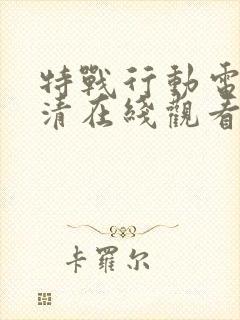 特戰行動電
清在綫觀看
卡羅尔